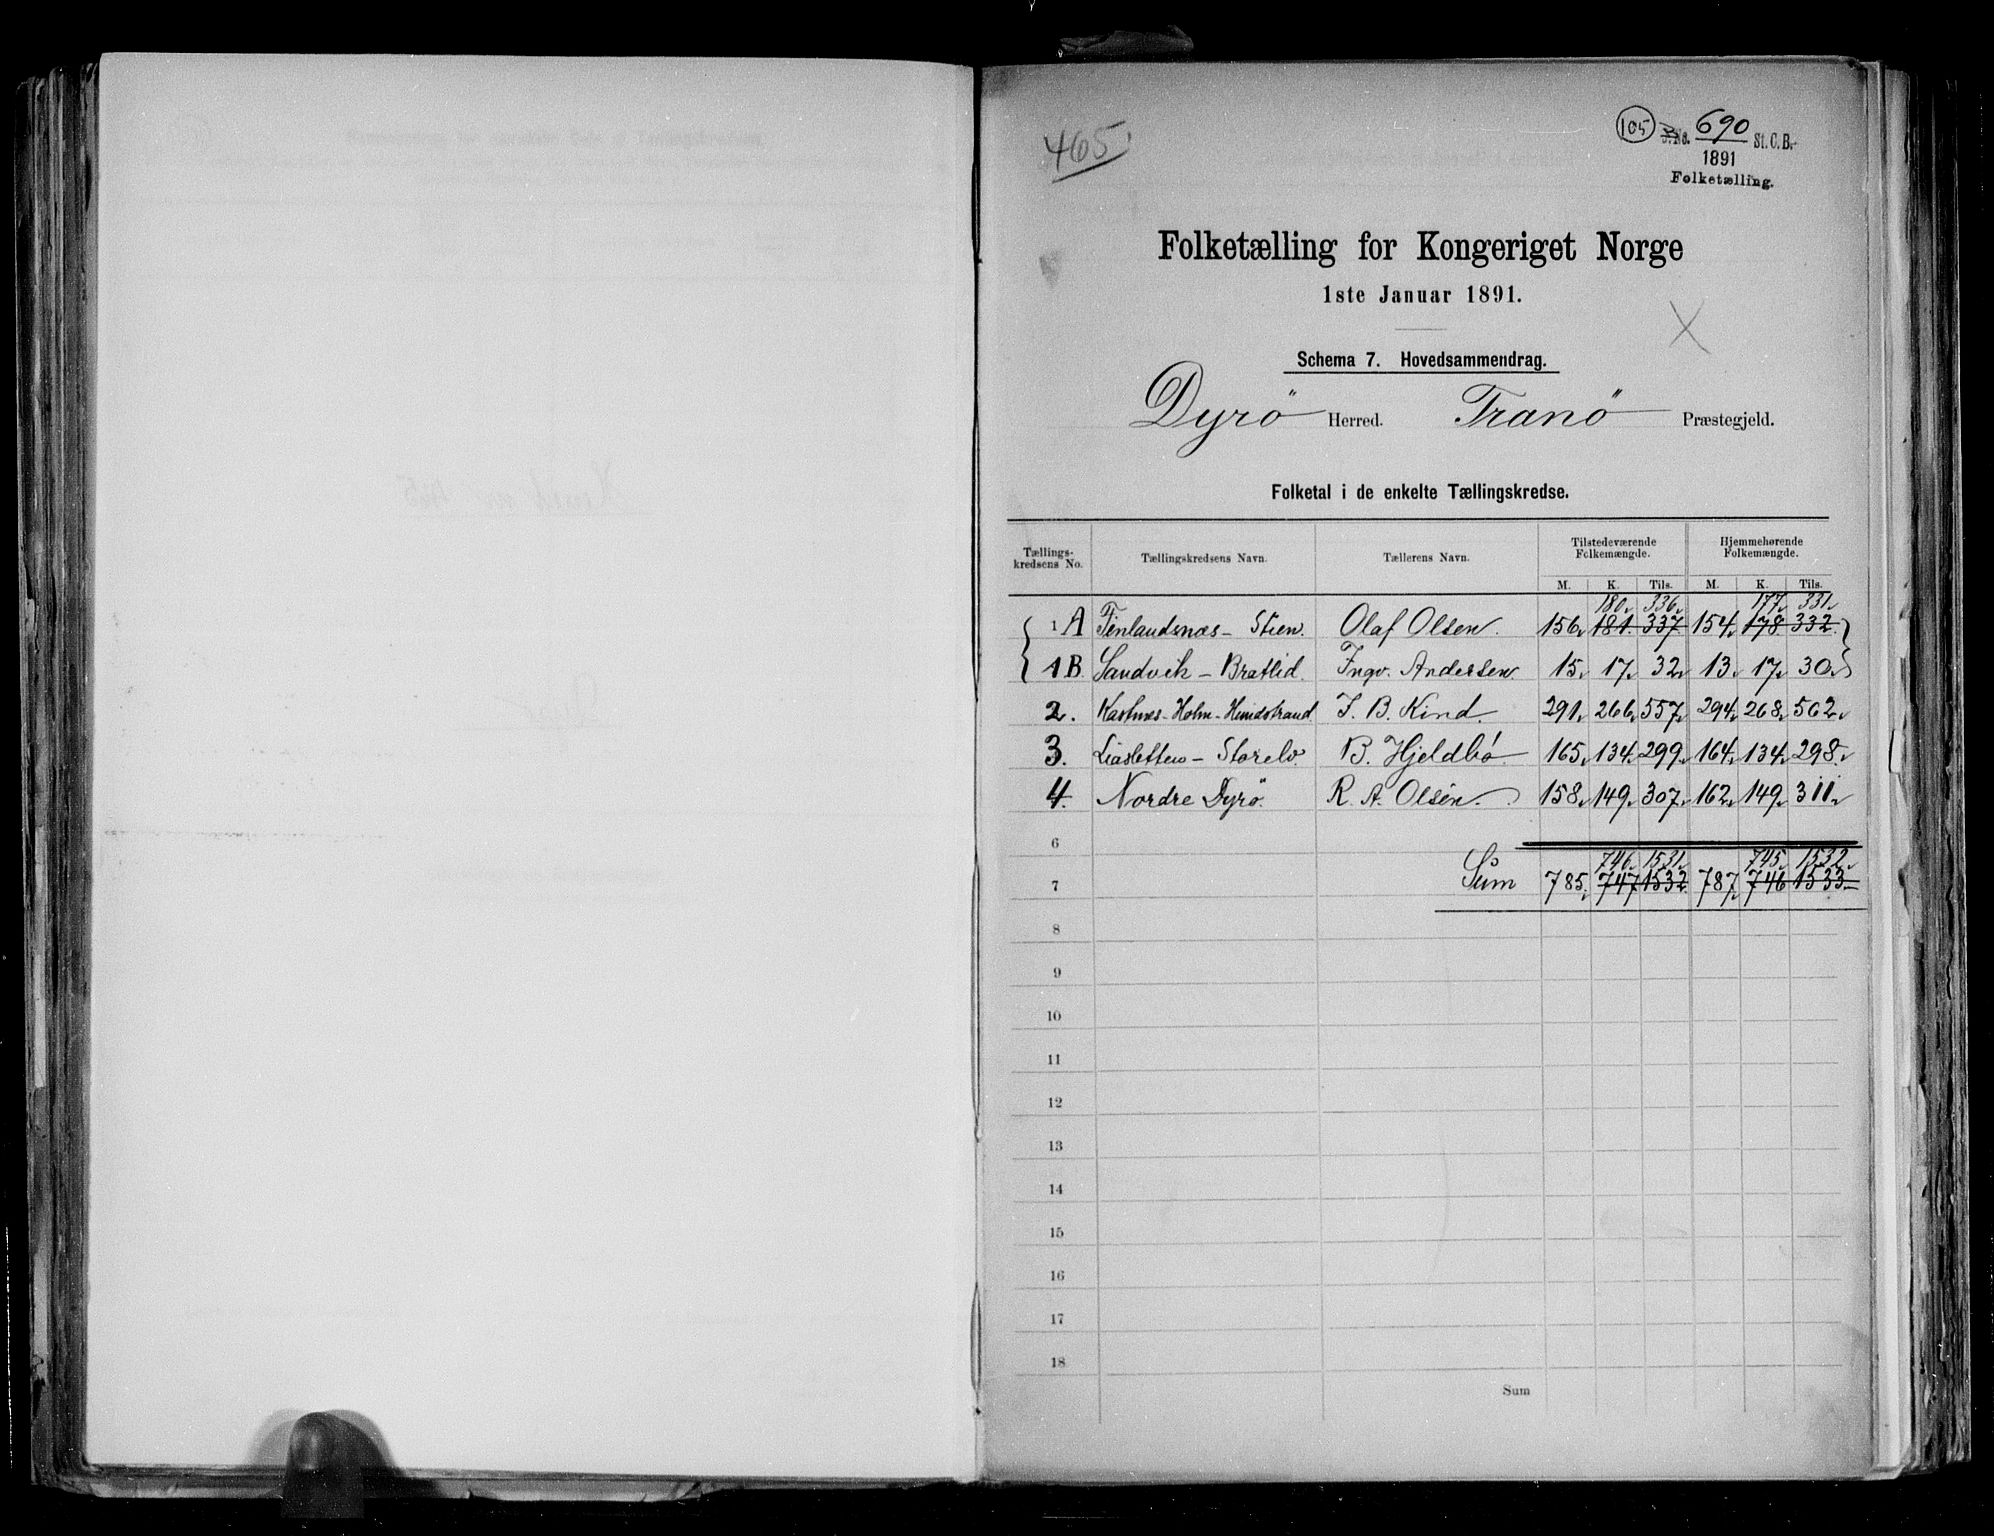 465
105 J.No. 690 St. C. B.
1891
Folketælling.
Folketælling for Kongeriget Norge
1ste Januar 1891.
Schema 7. Hovedsammendrag.
Dyrö Herred. Tranö Præstegjeld.
Folketal i de enkelte Tællingskredse.
Tællings-kredsens No. Tællingskredsens Navn. Tællerens Navn. Tilstedeværende Folkemængde. Hjemmehørende Folkemængde.
M. K. Tils. M. K. Tils.
180 336 177 331
1 A Finlandsnæs - Stien. Olaf Olsen. 156 181 337 154 178 332
1 B Sandvik - Bratlid. Ingv. Andersen 15 17 32 13 17 30
2. Kastnes - Holm - Hundstrand J. B. Kind. 291 266 557 294 268 562
3. Liasletten - Storelv. B. Hjeldbö 165 134 299 164 134 298
4. Nordre Dyrö. R. A. Olsen. 158 149 307 162 149 311
6
746 1531 745 1532
7 Sum 785 747 1532 787 746 1533
8
9
10
11
12
13
14
15
16
17
18
Sum